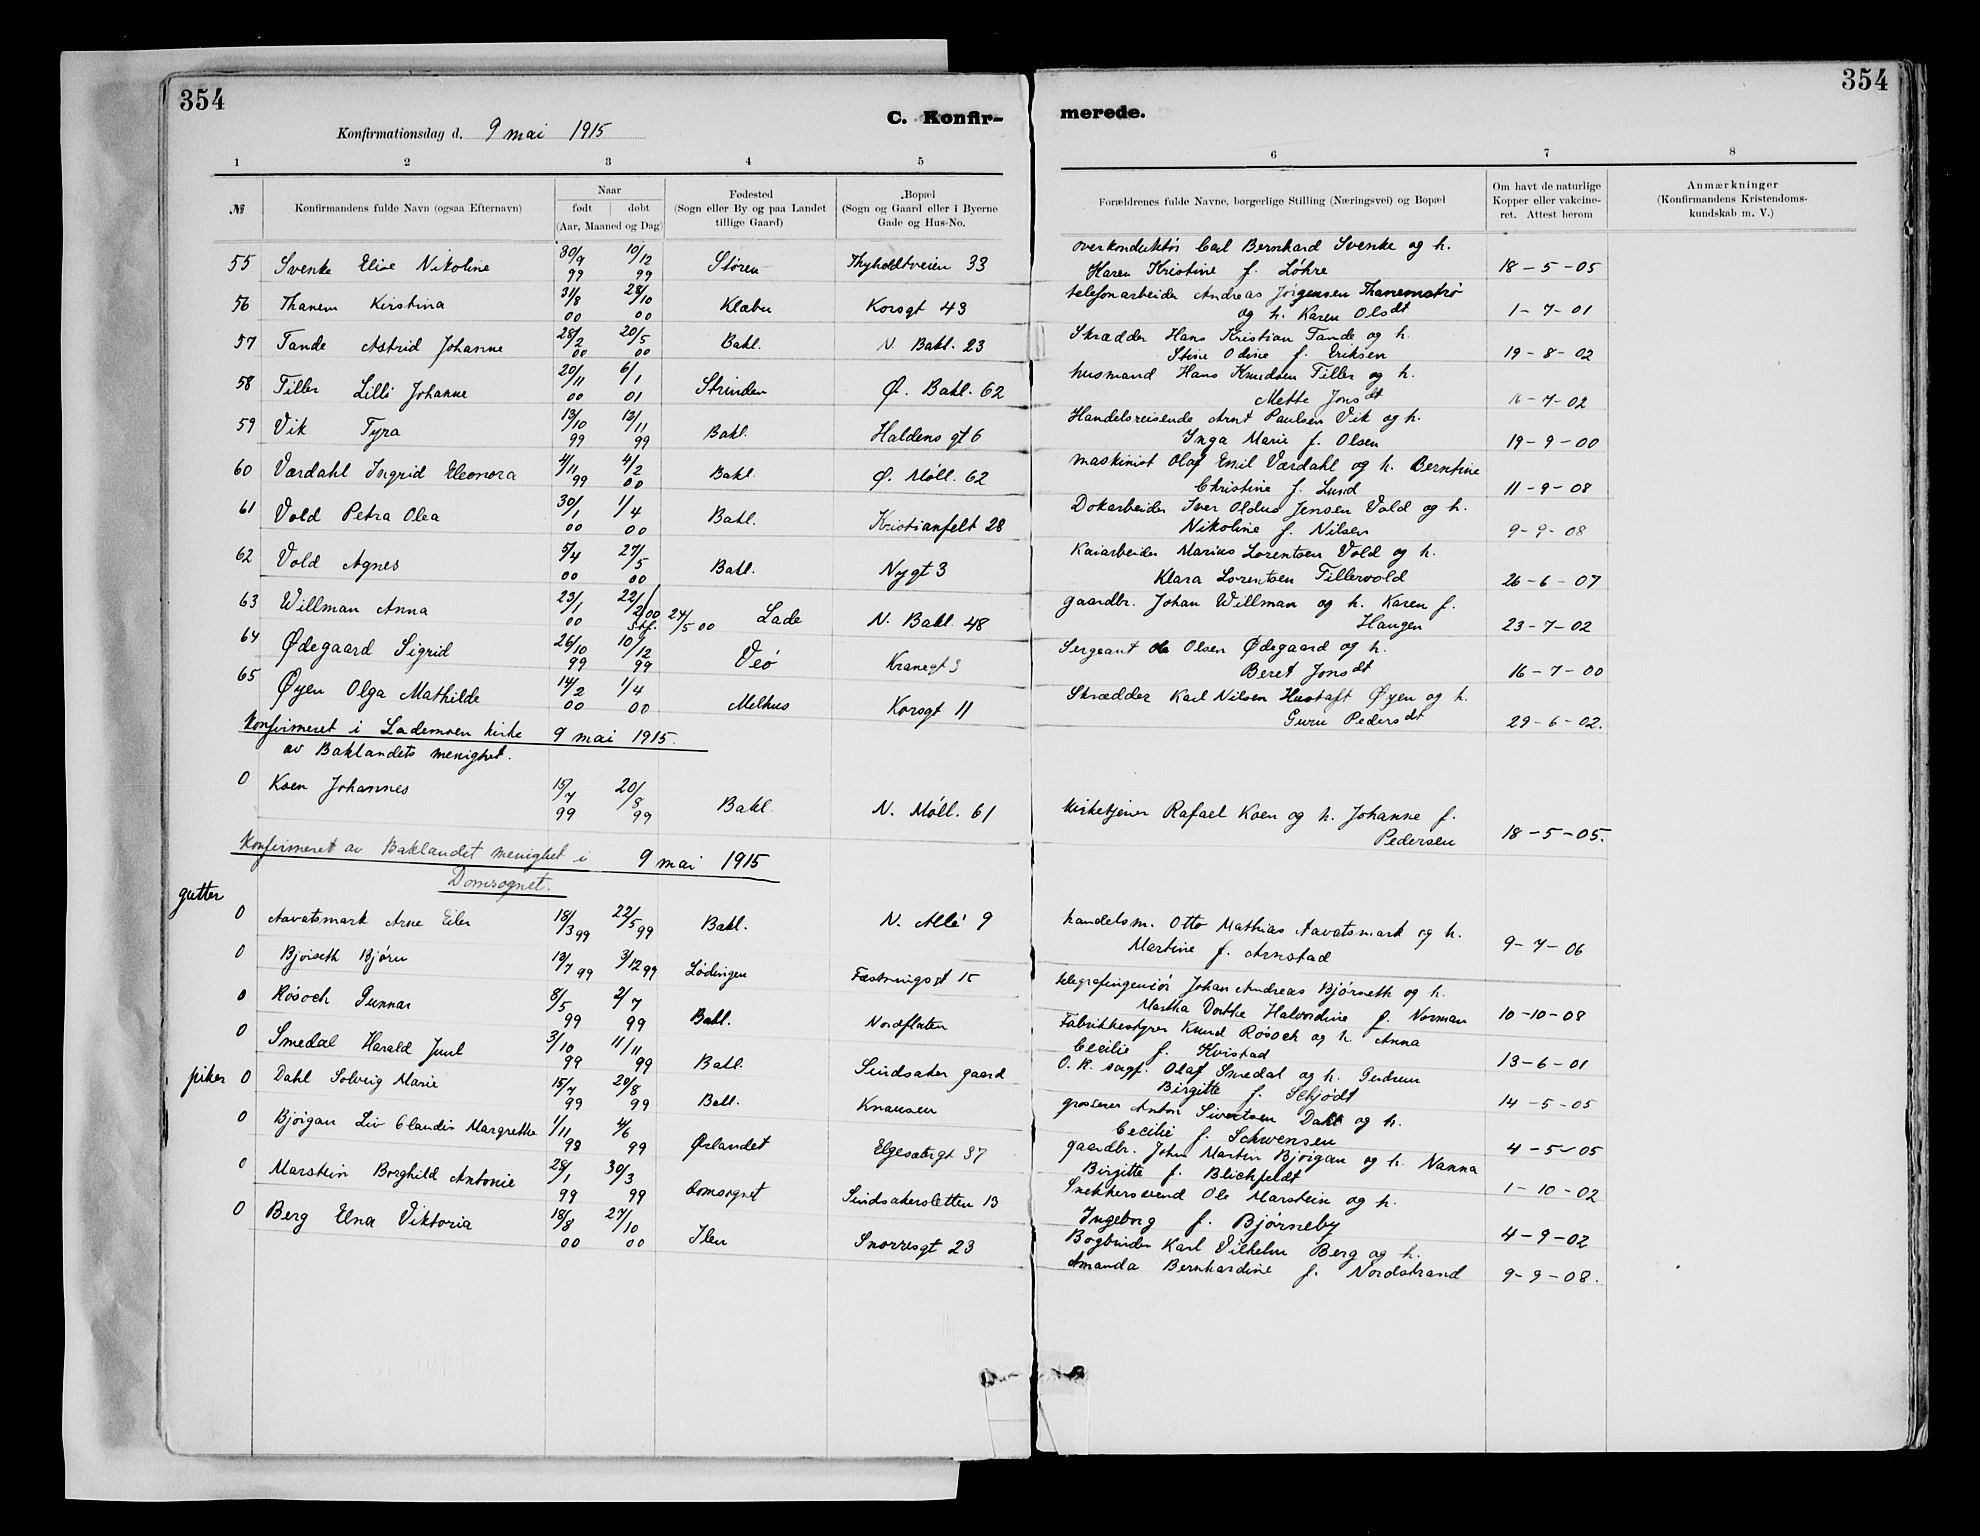 354
354
C. Konfir-
merede.
Konfirmationsdag d. 9 mai 1915
1 2 3 4 5 6 7 8
№
Konfirmandens fulde Navn (ogsaa Efternavn)
Naar
født døbt
(Aar, Maaned og Dag)
Fødested
(Sogn eller By og paa Landet
tillige Gaard)
Bopæl
(Sogn og Gaard eller i Byerne
Gade og Hus-No.
Forældrenes fulde Navne, borgerlige Stilling (Næringsvei) og Bopæl
Om havt de naturlige
Kopper eller vakcine-
ret. Attest herom
Anmærkninger
(Konfirmandens Kristendoms-
kundskab m. V.)
55 Svenke Elise Nikoline 30/9 99 10/12 99 Støren Thyholdtveien 33 overkonduktør Carl Bernhard Svenke og h.
Karen Kristine f. Løhre 18-5-05
56 Thanem Kirstina 31/8 00 28/10 00 Klæbu Korsgt 43 telefonarbeider Andreas Jørgensen Thanemstrø
og h. Karen Olsdt 1-7-01
57 Tande Astrid Johanne 28/2 00 20/5 00 Bakl. N. Bakl. 23 Skrædder Hans Kristian Tande og h.
Stine Odine f. Eriksen 19-8-02
58 Tiller Lilli Johanne 20/11 00 6/1 01 Strinden Ø. Bakl. 62 husmand Hans Knudsen Tiller og h.
Mette Jonsdt 16-7-02
59 Vik Tyra 13/10 99 12/11 99 Bakl. Haldens gt 6 Handelsreisende Arnt Paulsen Vik og h.
Inga Marie f. Olsen 19-9-00
60 Værdahl Ingrid Eleonora 4/11 99 4/2 00 Bakl. Ø. Møll. 62 maskinist Olaf Emil Værdahl og h. Berntine
Christine f. Lund 11-9-08
61 Vold Petra Olea 30/1 00 1/4 00 Bakl. Kristianfelt 28 Dokarbeider Iver Oldus Jensen Vold og h.
Nikoline f. Nilsen 9-9-08
62 Vold Agnes 5/4 00 27/5 00 Bakl. Nygt 3 Kaiarbeider Marius Lorentsen Vold og h.
Klara Lorentsen Tillervold 26-6-07
63 Willman Anna 23/1 00 22/2 00 stf. 24/5 00 Lade N. Bakl. 48 gaardbr. Johan Willman og h. Karen f.
Haugen 23-7-02
64 Ødegaard Sigrid 26/10 99 10/12 99 Veø Kranegt 3 Sergeant Ole Olsen Ødegaard og h.
Beret Jonsdt 16-7-00
65 Øyen Olga Mathilde 14/2 00 1/4 00 Melhus Korsgt 11 Skrædder Karl Nilsen Hustaft Øyen og h.
Guru Pedersdt 29-6-02.
Konfirmeret i Lademoen kirke 9 mai 1915.
av Baklandets menighet.
0 Koen Johannes 15/7 99 20/8 99 Bakl. N. Møll. 61 Kirketjener Rafael Koen og h. Johanne f.
Pedersen 18-5-05.
Konfirmeret av Baklandet menighet i 9 mai 1915
Domsognet.
gutter
0 Aavatsmark Arne Eilen 18/3 99 22/5 99 Bakl. N. Alle 9 handelsm. Otto Mathias Aavatsmark og h.
Martine f. Arnstad 9-7-06
0 Bjøiseth Bjørn 13/7 99 3/12 99 Lødingen Fæstningsgt 15 telegrafingeniør Johan Andreas Bjørseth og h.
Martha Dorthe Halvordine f. Norman 10-10-08
0 Røsoch Gunnar 8/5 99 2/7 99 Bakl. Nordflaten Fabrikkestyrer Knud Røsoch og h Anna
Cecilie f. Kvistad 13-6-01
0 Smedal Harald Juul 3/10 99 11/11 99 Bakl. Sindsaker gaard O. R. sagf. Olaf Smedal og h. Gudrun
Birgitte f. Schjødt 14-5-05
piker 0 Dahl Solveig Marie 15/7 99 20/8 99 Bakl. Knausen grosserer Anton Sivertsen Dahl og h.
Cecilie f. Schwensen 4-5-05
0 Bjørgan Liv Claudis Margrethe 1/11 98 4/6 99 Ørlandet Elgesætergt 37 gaardbr. John Martin Bjørgan og h. Nanna
Birgitte f. Blichfeldt 1-10-02
0 Marstein Borghild Antonie 28/1 99 30/3 99 Domsognet Sindsakersletten 13 Snekkersvend Ole Marstein og h.
Ingeborg f. Bjørneby 4-9-02
0 Berg Elna Viktoria 18/8 00 27/10 00 Ilen Snorresgt 23 Bogbinder Karl Vilhelm Berg og h.
Amanda Bernhardine f. Nordstrand 9-9-08.